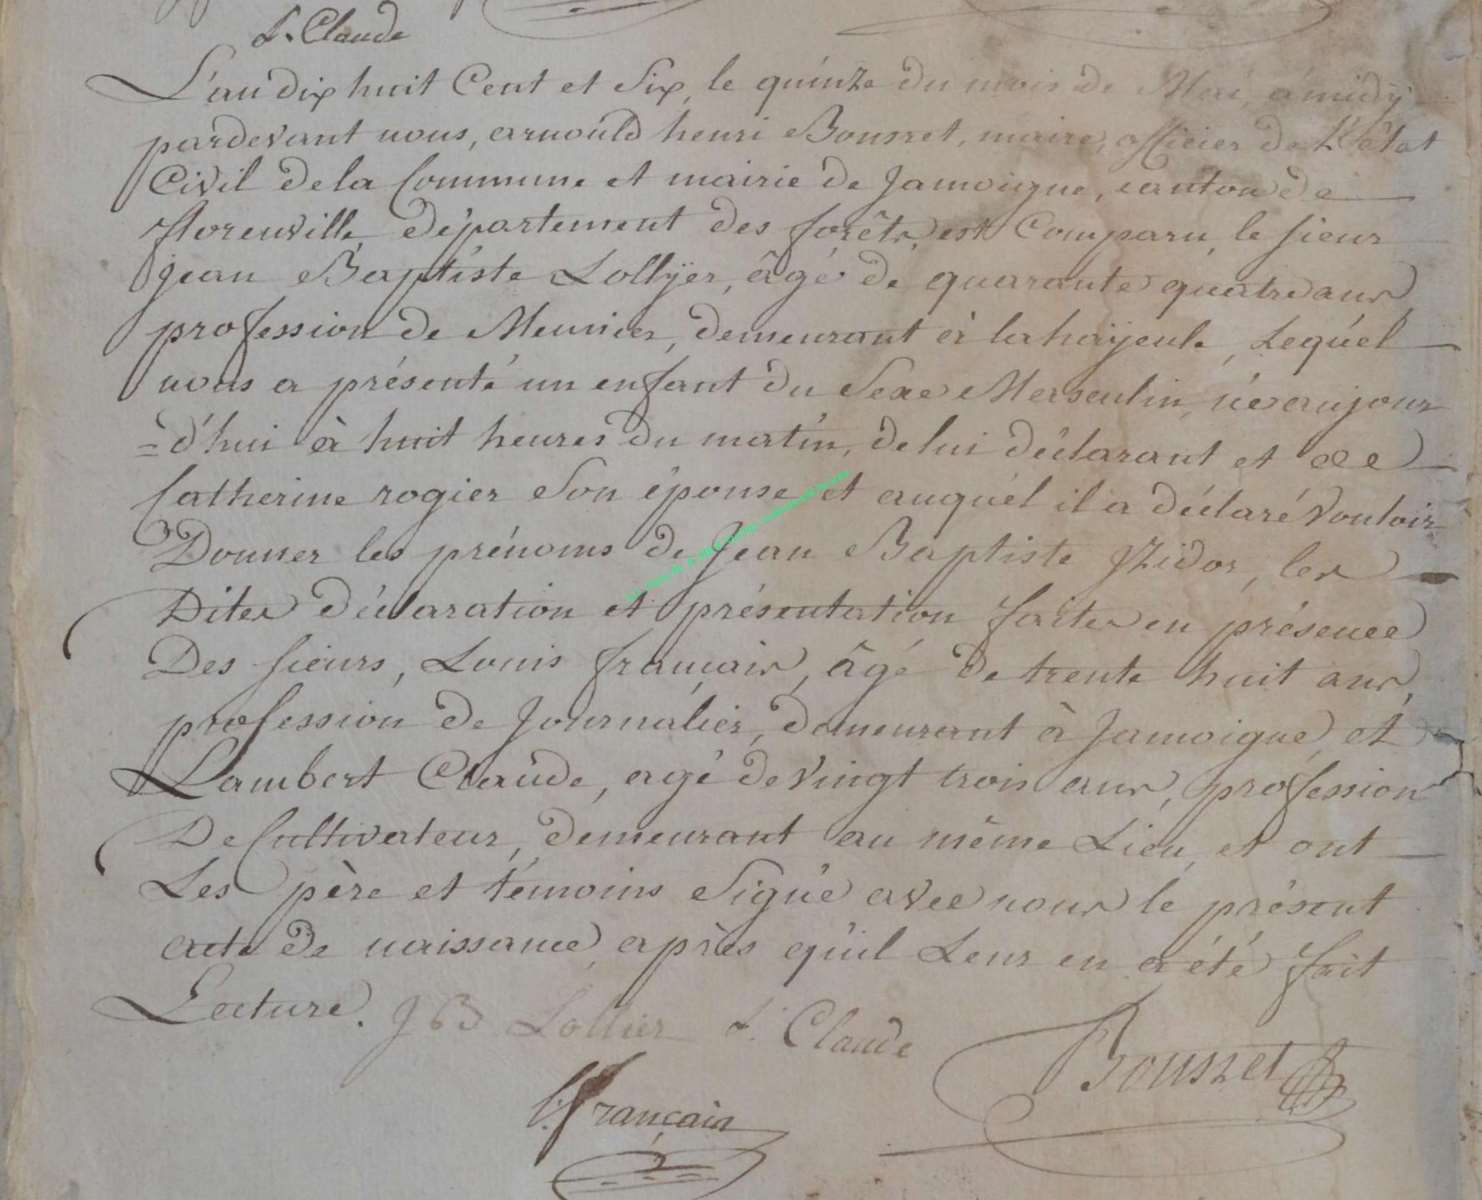 L. Claude
L'an dix huit Cent et Six, le quinze du mois de Mai, à midy
pardevant nous, arnould henri Bousset, maire, officier de L'état
Civil de la Commune et mairie de Jamoigne, canton de
florenville département des forêts, est Comparu, le sieur
jean Baptiste Lollÿer, âgé de quarante quatre ans,
profession de Meunier, demeurant à la hayeule, Lequél
nous a présenté un enfant du Sexe Masculin, née aujour
=d'hui à huit heures du matin, de lui déclarant et de
Catherine rogier Son épouse et auquél il a déclaré Vouloir
Donner les prénoms de Jean Baptiste Izidor, les
Dites déclaration et présentation faites en présence
Des sieurs, Louis français, âgé de trente huit ans,
profession de Journalier, demeurant à Jamoigne, et
Lambert Claude, agé de Vingt trois ans, profession
De Cultivateur, demeurant au même Lieu, et ont
Les père et témoins Signé avec nous le présent
acte de naissance, après qu'il Leur en a été fait
Lecture. J B Lollier L. Claude
Bousset
l. français